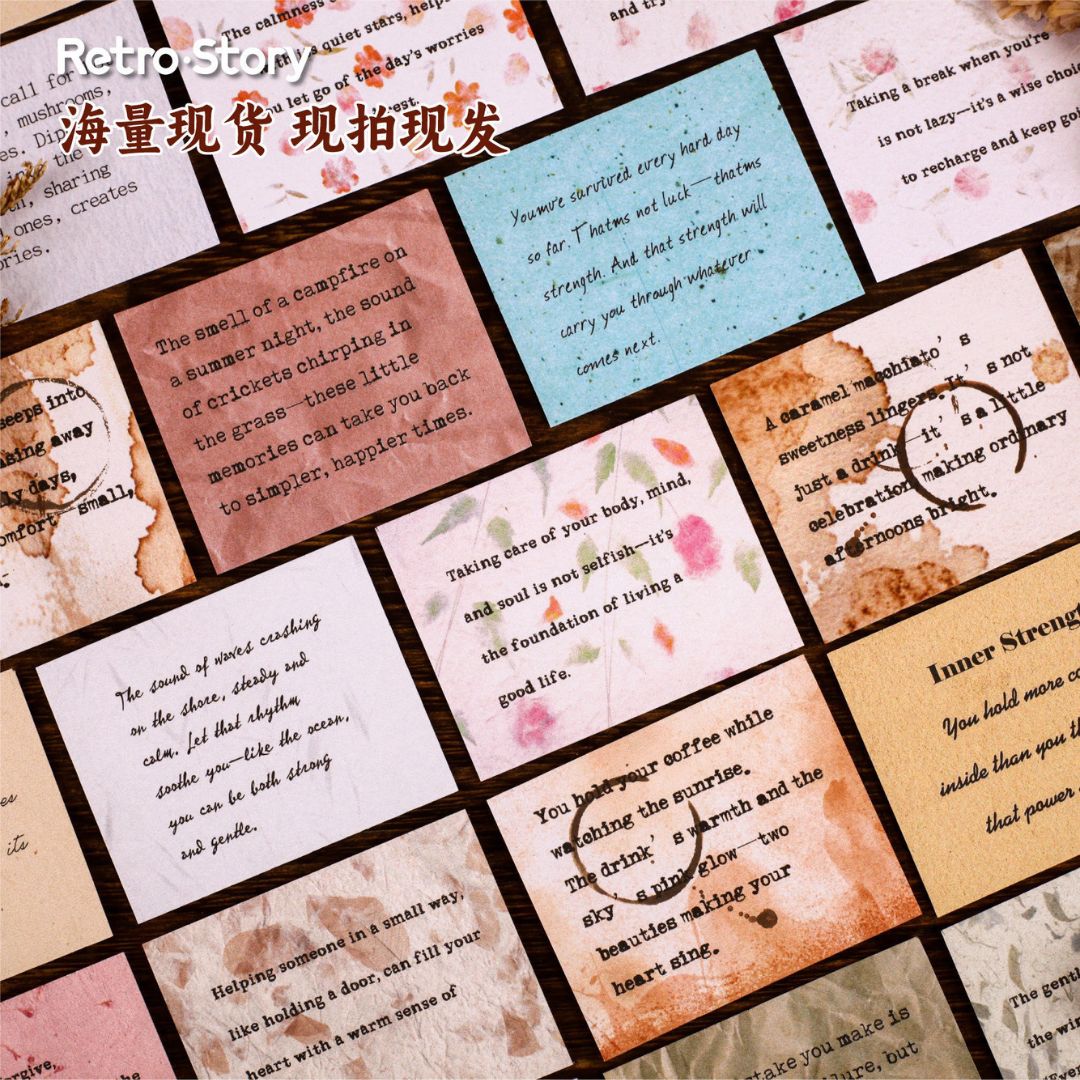 Retro·Story
海量现货 现拍现发
call for
, mushrooms,
the
sharing
ones, creates
The calmness
quiet stars,
let go of the day's worries
and
Taking a break when you're
is not lazy—it's a wise
to recharge and keep
Youmve survived every hard day
so far. Thatms not luck—thatms
strength. And that strength will
carry you through whatever
comes next.
The smell of a campfire on
a summer night, the sound
of crickets chirping in
the grass—these little
memories can take you back
to simpler, happier times.
A caramel macchiato's
sweetness lingers. It's not
just a drink—it's a little
celebration making ordinary
afternoons bright.
into
away
days,
small,
Taking care of your body, mind,
and soul is not selfish—it's
the foundation of living a
good life.
The sound of waves crashing
on the shore, steady and
calm. Let that rhythm
soothe you—like the ocean,
you can be both strong
and gentle.
Inner
You hold more
inside than you
that power
You hold your coffee while
watching the sunrise.
The drink's warmth and the
sky's pink glow—two
beauties making your
heart sing.
its
Helping someone in a small way,
like holding a door, can fill your
heart with a warm sense of
you make is
but
The
the